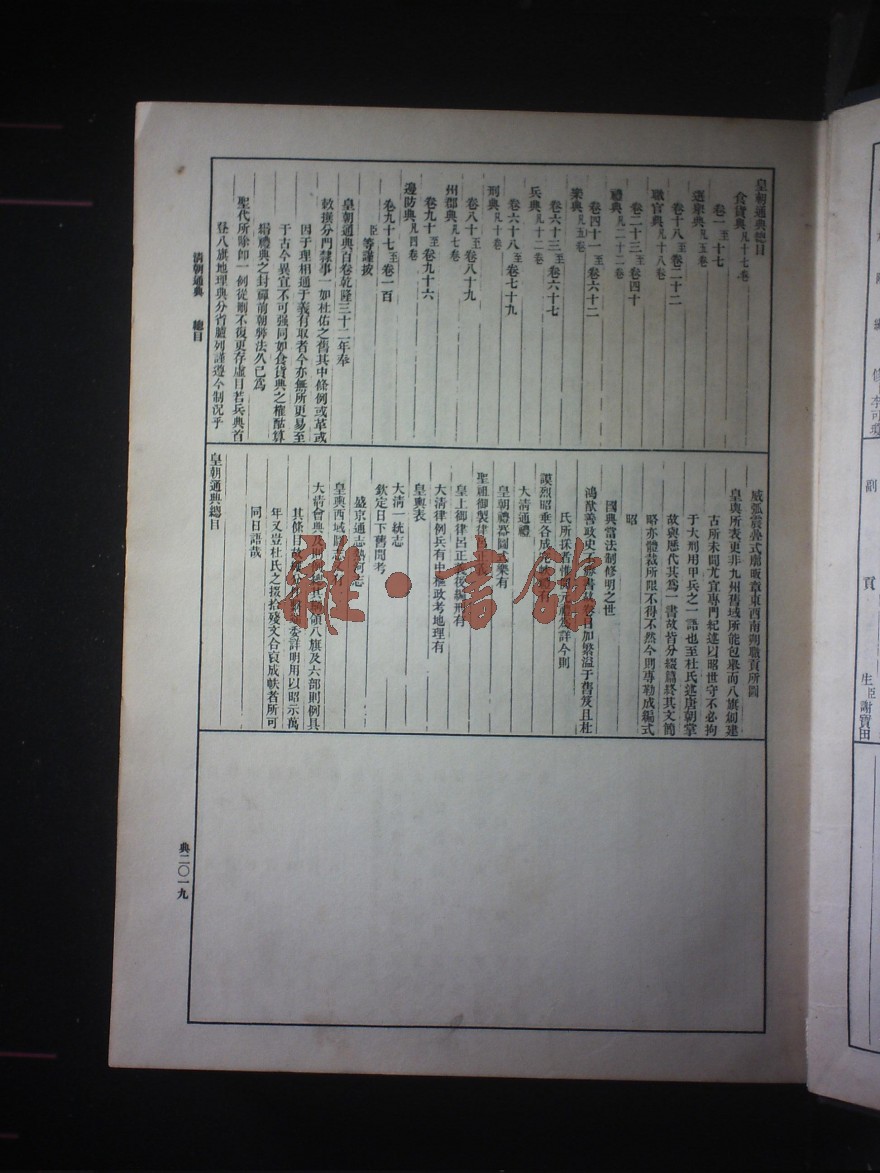 皇朝通典總目
食貨典凡十七卷
卷一至十七
選舉典凡五卷
卷十八至二十二
職官典凡十八卷
卷二十三至卷四十
禮典凡二十二卷
卷四十一至卷六十二
樂典凡五卷
卷六十三至卷六十七
兵典凡十二卷
卷六十八至卷七十九
刑典凡十卷
卷八十至卷八十九
州郡典凡七卷
卷九十至卷九十六
邊防典凡四卷
卷九十七至卷一百
臣等謹按
皇朝通典百卷乾隆三十二年奉
敕撰分門隸事一如杜佑之舊其中條例或革或
因于理相通于義有取者今亦無所更易至
于古今異宜不可強同如食貨典之榷酤算
緡禮典之封禪前朝弊法久已為
聖代所除即一例從刪不復更存虛目若兵典首
登八旗地理典分省臚列謹遵今制況乎
威弧震疊式廓版章東西南朔職貢所圖
皇輿所表更非九州舊域所能包舉而八旗創建
古所未聞尤宜專門紀述以昭世守不必拘
于大刑用甲兵之一語也至杜氏述唐朝掌
故與歷代共為一書故皆分綴篇終其文簡
略亦體裁所限不得不然今則專勒成編式
昭
國典當法制修明之世
鴻猷善政史不勝書故卷目加繁溢于舊笈且杜
氏所採者惟開元禮為詳今則
謨烈昭垂各成
有
大清通禮
皇朝禮器圖式樂有
聖祖御製律呂正義
皇上御律呂正義後編刑有
大清律例兵有中樞政考地理有
皇輿表
大清一統志
欽定日下舊聞考
盛京通志熱河志
皇輿西域圖志
大清會典及則例總其綱領八旗及六部則例具
其條目故
委詳明用以昭示萬
年又豈杜氏之掇拾殘文合裒成帙者所可
同日語哉
皇朝通典總目
清朝通典 總目
典二〇一九
雜·書館
修
李可瓊
副
貢
生臣謝寶田